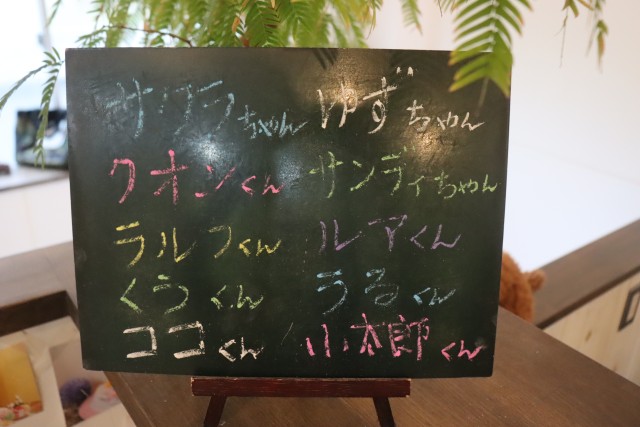 サクラちゃん ゆずちゃん
クオンくん サンディちゃん
ラルフくん ルアくん
くうくん うるくん
ココくん 小太郎くん